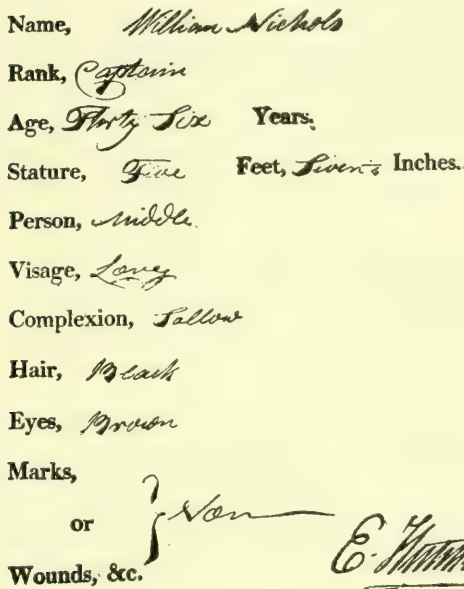 Name, William Nichols
Rank, Captain
Age, Thirty Six Years.
Stature, Five Feet, Seven Inches.
Person, Middle.
Visage, Long
Complexion, Sallow
Hair, Black
Eyes, Brown
Marks,
or } Non
E.
Wounds, &c.